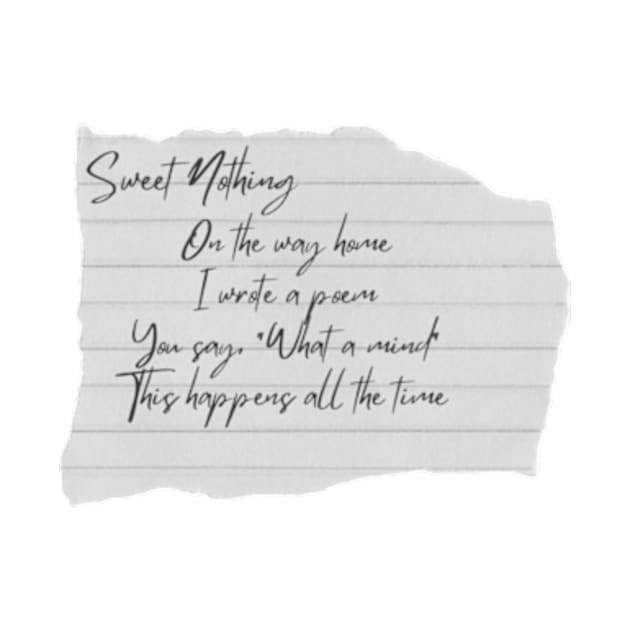 Sweet Nothing
On the way home
I wrote a poem
You say, "What a mind"
This happens all the time